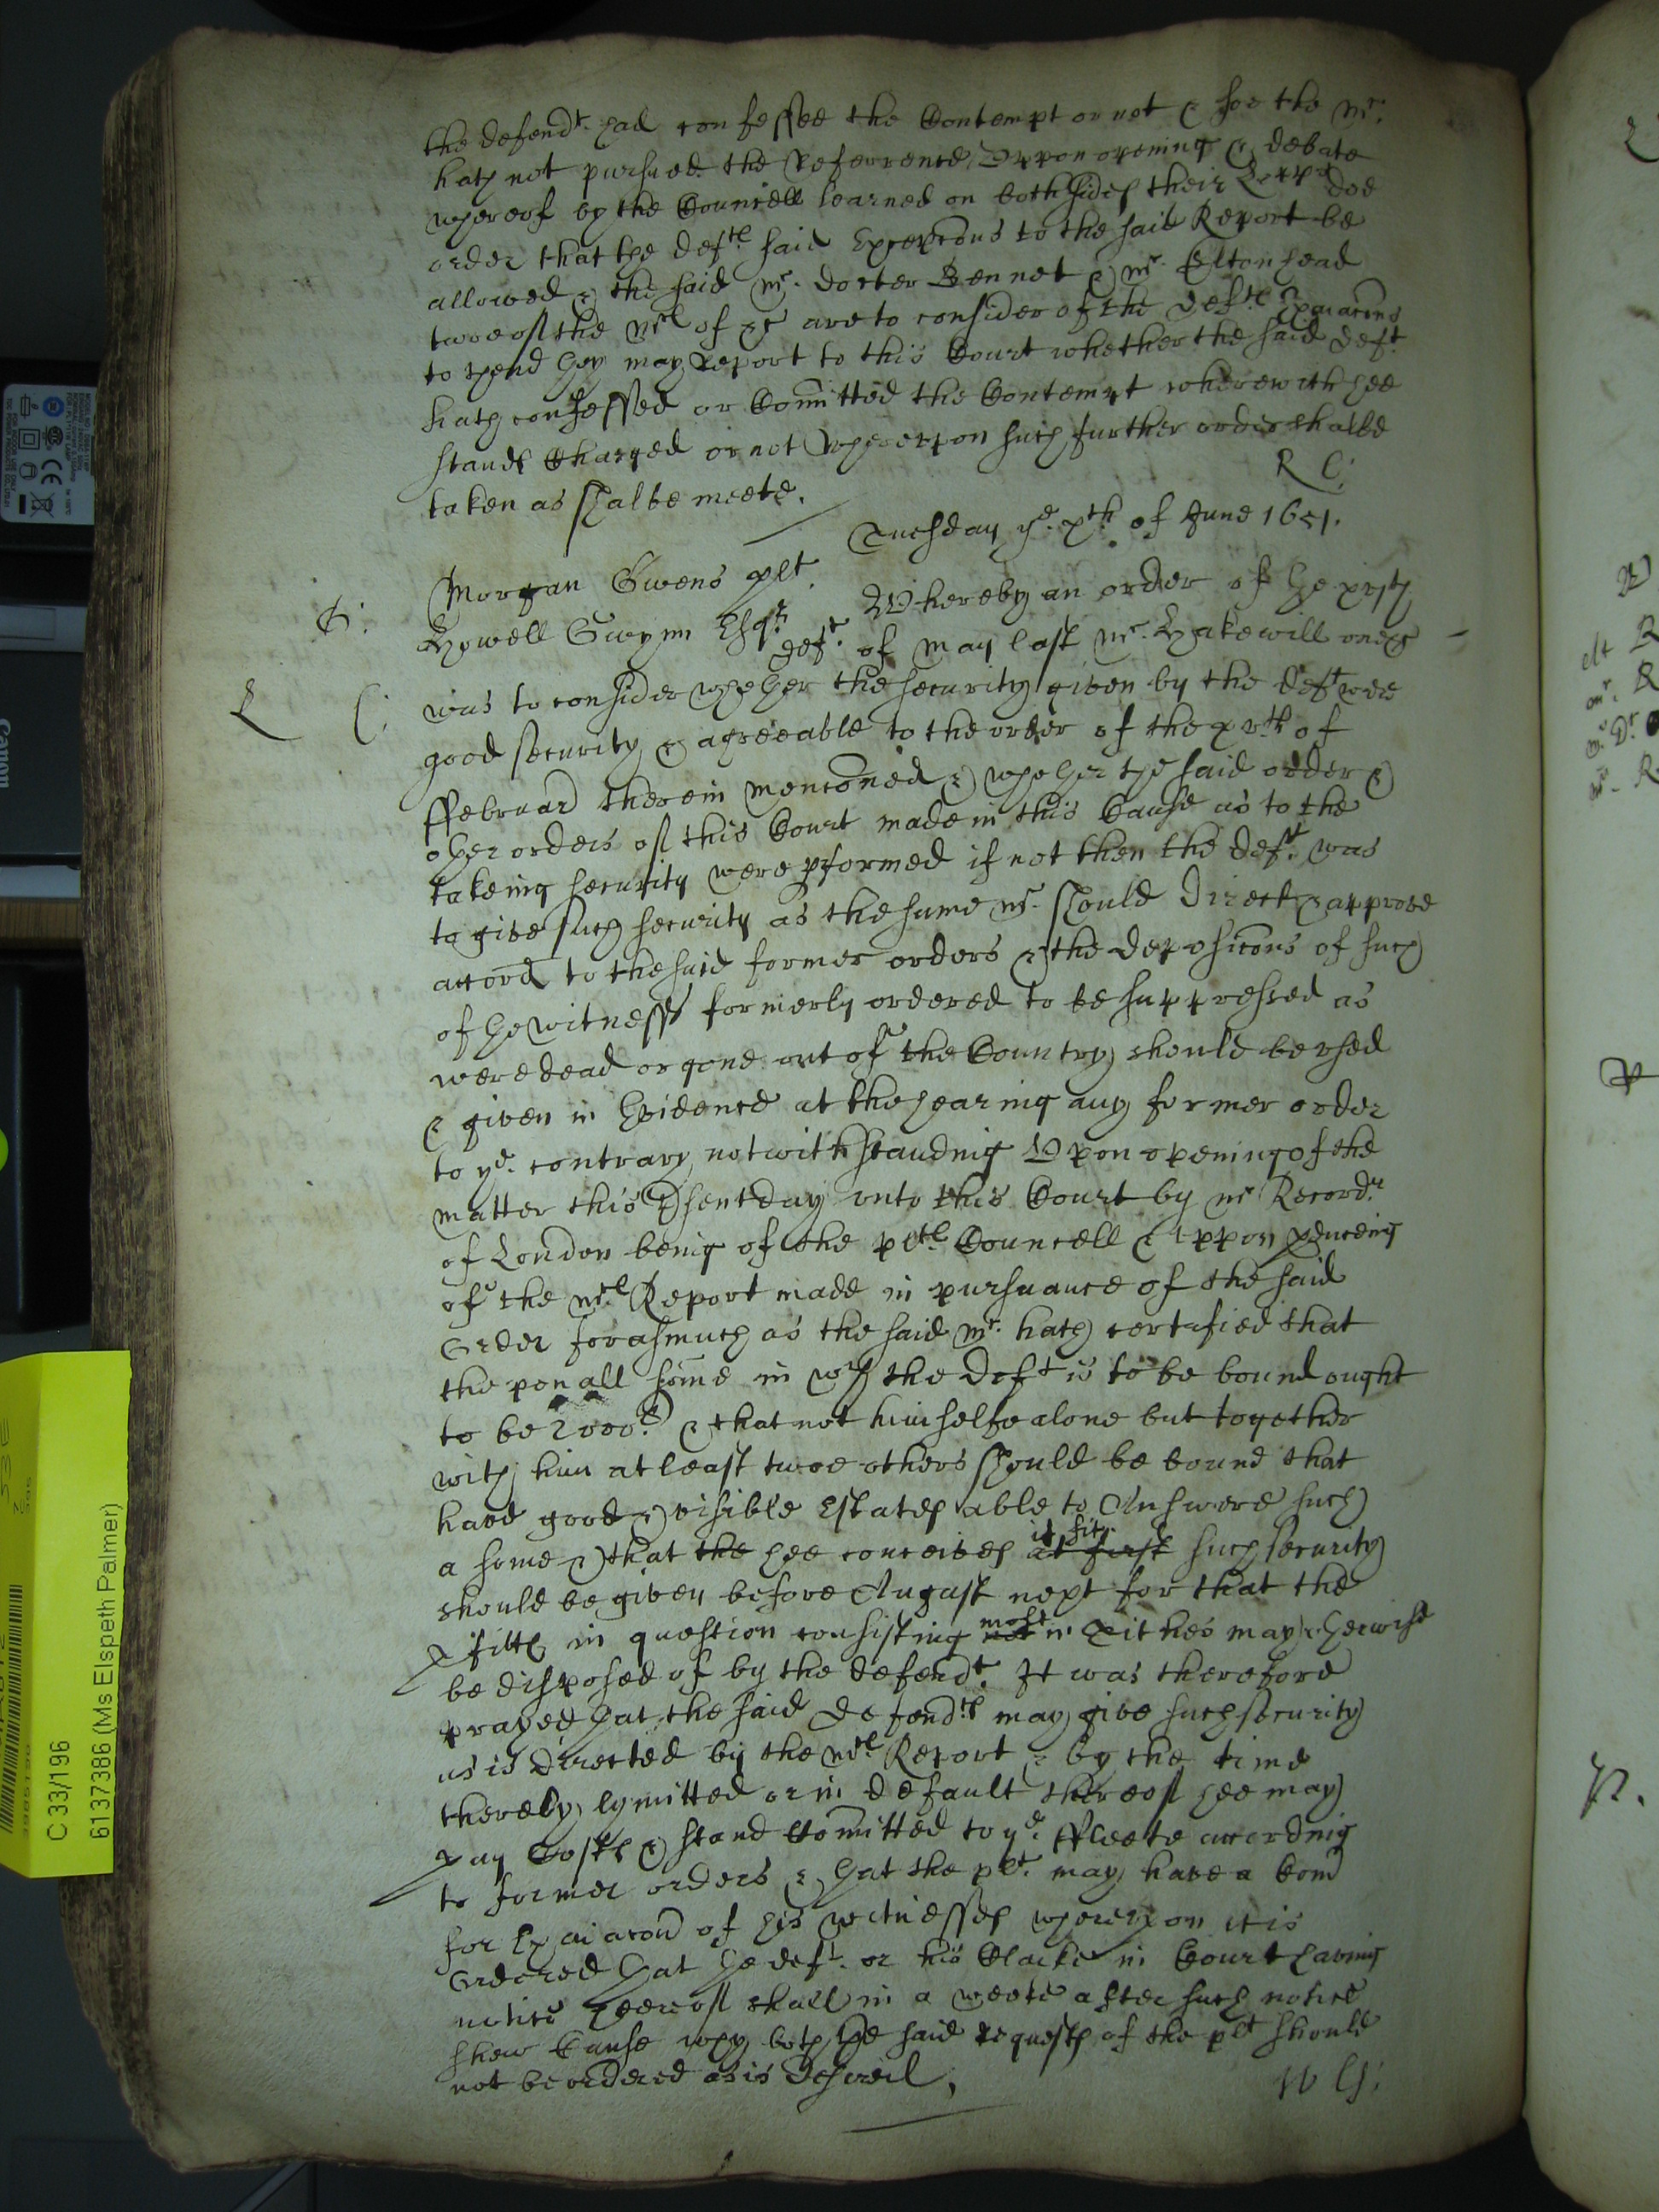 the defendt had confessed the Contempt or not & soe the mr.
hath not pursued the Reference, Uppon opening & debate
whereof by the Councell learned on both sides their Lopps doe
order that the defts said Exceptions to the said Report be
allowed & the said mr. docter Bennet & mr. Eltonhead
twoe of the mrs of ye are to consider of the defts Exaiacons
to thend they may Report to this Court whether the said deft.
hath confessed or Comitted the Contempt wherewith hee
stands Charged or not whereuppon such further order shalbe
taken as shalbe meete.
R C:
Tuesday ye. xth. of June 1651.
G:
Morgan Gwens plt.
Howell Gwynn Esqr deft.
Whereby an order of the
of May last mr. Hakewill
L C:
was to consider whether the security given by the deft were
good security & agreeable to the order of the xvth of
ffebruar therein mencõned & whether the said order &
other orders of this Court made in this Cause as to the
takeing security were pformed if not then the deft. was
to give such security as the same mr. should Direct & approve
accord to the said former orders & the deposicons of such
of the witnesses formerly ordered to be suppressed as
were dead or gone out of the Country should be vsed
& given in Evidence at the hearing any former order
to ye. contrary notwithstanding Upon opening of the
matter this psent day unto this Court by mr Recordr
of London being of the plts. Councell & uppon
of the mrs Report made in pursuance of the said
Order forasmuch as the said mr. hath certified that
the penall some in wch the deft is to be bound ought
to be 2000l & that not himselfe alone but together
with him at least twoe others should be bound that
have good & visible Estates able to Answere such
a some & that the hee conceives at first it fitt such security
should be given before August next for that the
pfitts in question consisting not most in Tithes may otherwise
be disposed of by the defendt. It was therefore
prayed that the said defendts may give such security
as is directed by the mrs Report & by the time
thereby lymitted or in default thereof hee may
pay Costs & stand Comitted to ye. ffleete according
to former orders & that the plt. may have a Comn
for Exaiacon of his witnesses whereupon it is
Ordered that the deft. or his Clarke in Court having
notice hereof shall in a weeke after such notice
shew Cause why both the said requests of the plt should
not be ordered as is desired,
C 33/196
6137386 (Ms Elspeth Palmer)
Canon